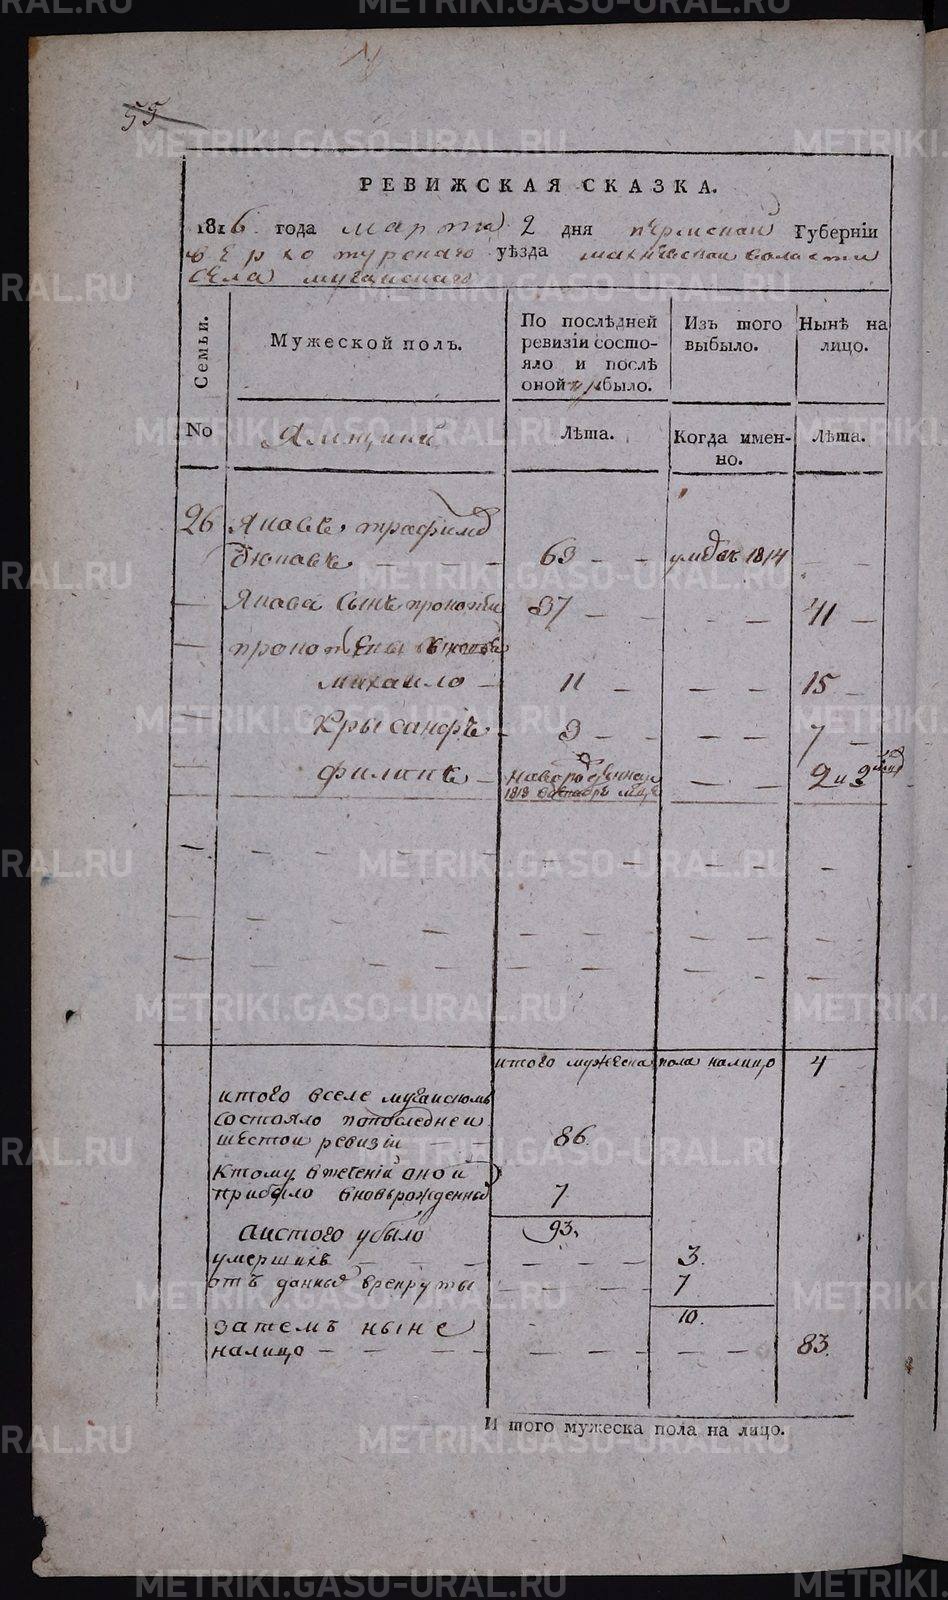 55
РЕВИЖСКАЯ СКАЗКА.
1816 года марта 2 дня пермской Губерніи
верхотурскаго уѣзда махневской волости
села мугайскаго
Семьи.
Мужеской полъ.
По послѣдней ревизіи состояло и послѣ оной прибыло.
Изъ того выбыло.
Нынѣ на лицо.
No
Ямщики
Лѣта.
Когда именно.
Лѣта.
26 Яковъ трофимовъ
69 умре въ 1814
Якова сынъ прокопей 37 41
прокопьевы сыновья
михаило 11 15
Хрысанфъ 3 7
филипъ новорожденной 2 и 2
1813
итого мужеска пола налицо 4
итого вселе мугайскомъ
состояло попоследней
шестой ревизіи 86
Ктому втечении оной
прибыло вновьрожденныхъ 7
93.
Аистого убыло
умершихъ 3.
отъ данныхъ врекруты 7
10.
затемъ ныне
налицо 83.
И того мужеска пола на лицо.
METRIKI.GASO-URAL.RU